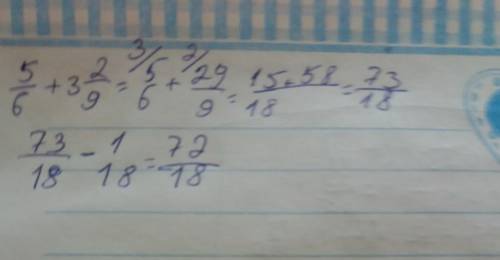 5/6 + 3 2/9 = 3/ 5/6 + 2/ 29/9 = 15+58/18 = 73/18
73/18 - 1/18 = 72/18